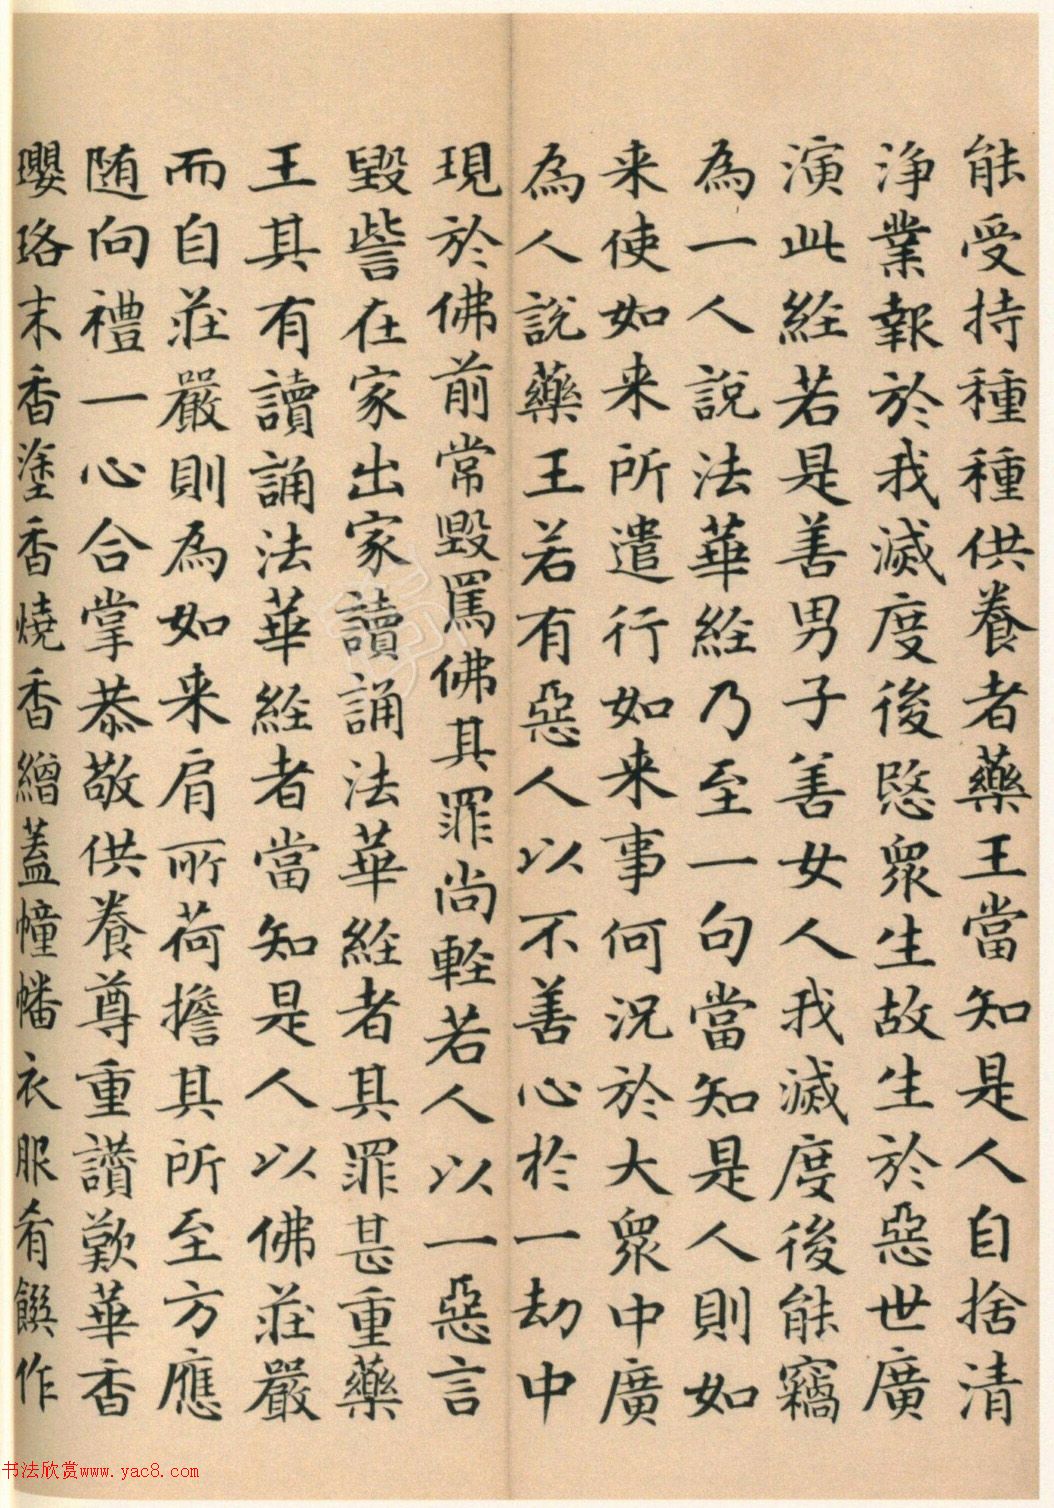 能受持種種供養者藥王當知是人自捨清
淨業報於我滅度後愍眾生故生於惡世廣
演此經若是善男子善女人我滅度後能竊
為一人說法華經乃至一句當知是人則如
来使如来所遣行如来事何況於大眾中廣
為人說藥王若有惡人以不善心於一劫中
現於佛前常毀罵佛其罪尚輕若人以一惡言
毀訾在家出家讀誦法華經者其罪甚重藥
王其有讀誦法華經者當知是人以佛莊嚴
而自莊嚴則為如来肩所荷擔其所至方應
随向禮一心合掌恭敬供養尊重讚歎華香
瓔珞末香塗香燒香繒蓋幢幡衣服肴饌作
书法欣赏www.yac8.com